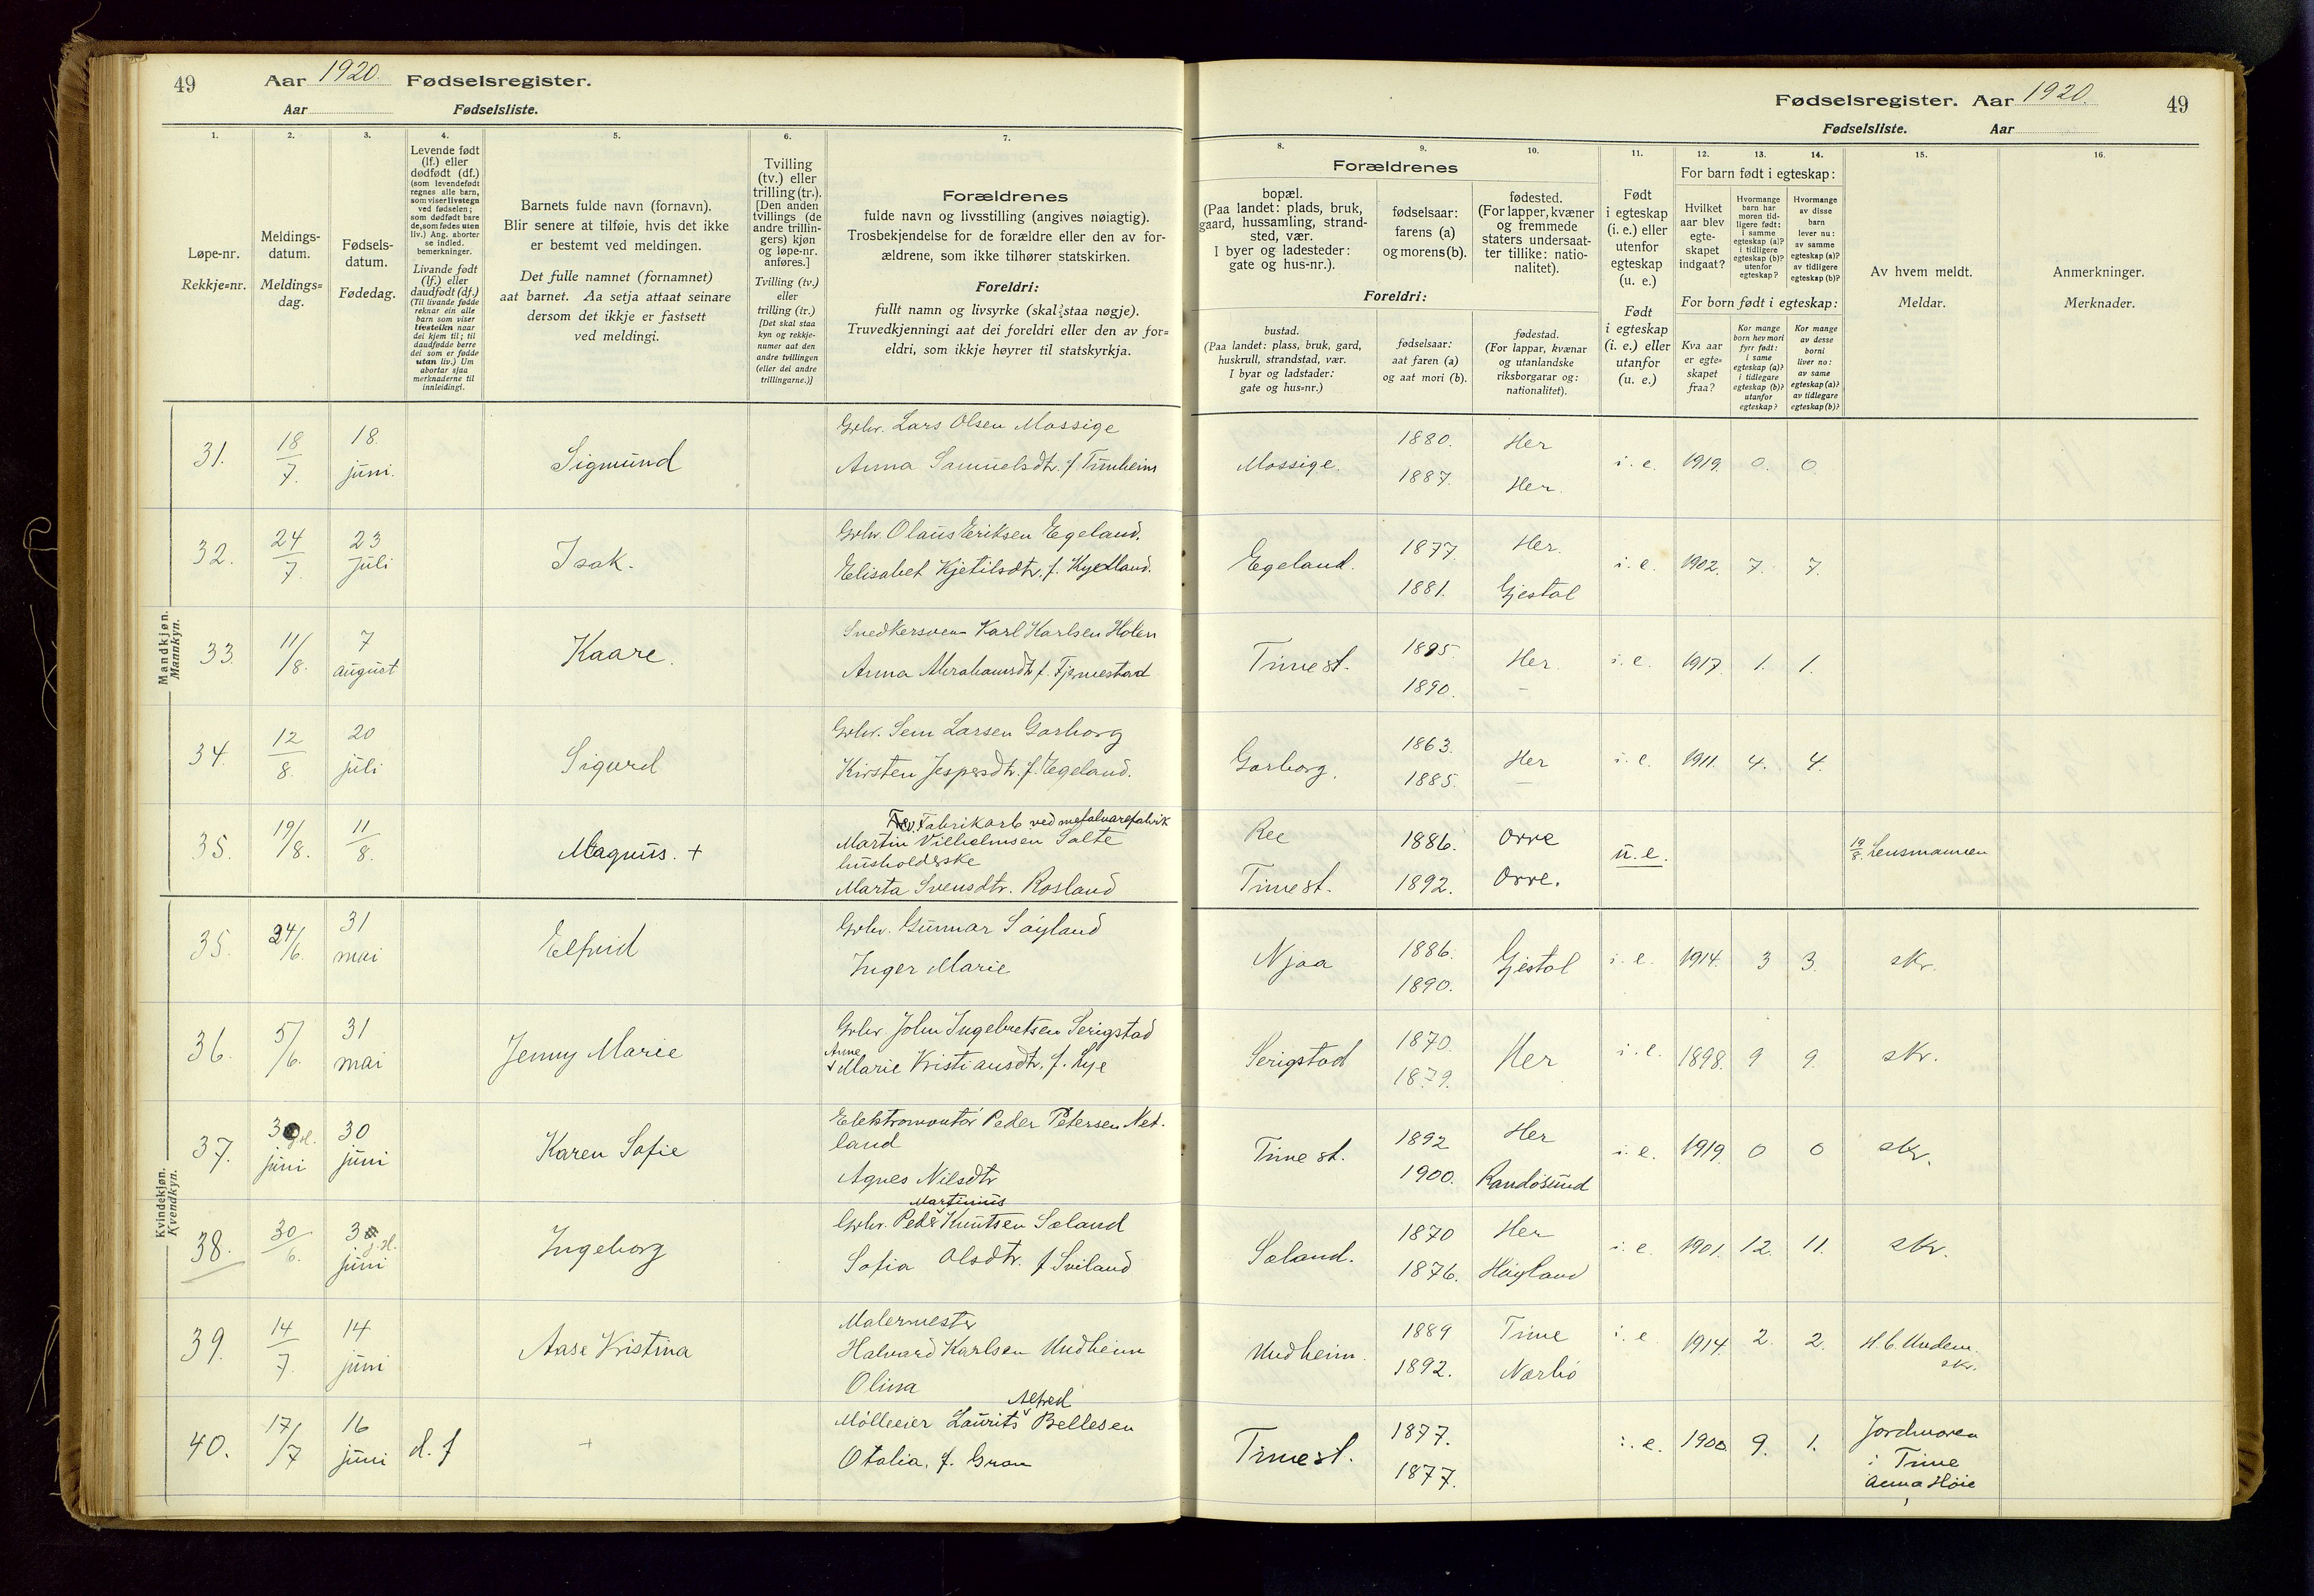 49
Aar 1920. Fødselsregister.
Aar Fødselsliste.
1.
2.
3.
4.
5.
6.
7.
Løpe-nr.
Rekkje=nr.
Meldings-
datum.
Meldings=
dag.
Fødsels-
datum.
Fødedag.
Levende født
(lf.) eller
dødfødt (df.)
(som levendefødt
regnes alle barn,
som viser livstegn
ved fødselen;
som dødfødt bare
de, som fødes uten
liv.) Ang. aborter
se indled.
bemerkninger.
Livande født
(lf.) eller
daudfødt (df.)
(Til livande fødde
reknar ein alle
barn som viser
livsteikn naar
dei kjem til; til
daudfødde berre
dei som er fødde
utan liv.) Um
abortar sjaa
merknaderne til
innleidingi.
Barnets fulde navn (fornavn).
Blir senere at tilføie, hvis det ikke
er bestemt ved meldingen.
Det fulle namnet (fornamnet)
aat barnet. Aa setja attaat seinare
dersom det ikkje er fastsett
ved meldingi.
Tvilling
(tv.) eller
trilling (tr.).
[Den anden
tvillings (de
andre trillin-
gers) kjøn
og løpe-nr.
anføres.]
Tvilling (tv.)
eller
trilling (tr.)
[Det skal staa
kyn og rekkje-
numer aat den
andre tvillingen
(eller dei andre
trillingarne.)]
Forældrenes
fulde navn og livsstilling (angives nøiagtig).
Trosbekjendelse for de forældre eller den av for-
ældrene, som ikke tilhører statskirken.
Foreldri:
fullt namn og livsyrke (skal staa nøgje).
Truvedkjenningi aat dei foreldri eller den av for=
eldri, som ikkje høyrer til statskyrkja.
Mandkjøn.
Mannkyn.
31. 18/7. 18 juni. Sigmund
Grbr. Lars Olsen Mossige
Anna Samuelsdtr. f. Tunheim
32. 24/7. 23 juli Isak.
Grbr. Olaus Eriksen Egeland.
Elisabet Kjetilsdtr. f. Kydland.
33. 11/8. 7 august Kaare.
Snedkersven Karl Karlsen Holen
Anna Abrahamsdtr f. Fjermestad
34. 12/8. 20 juli Sigurd
Grbr. Sem Larsen Garborg
Kirsten Jespersdtr. f. Egeland.
35. 19/8. 11/8. Magnus. +
Fabrikarb ved metalvarefabrik
Martin Vilhelmsen Salte
husholderske
Marta Svensdtr. Rosland
Kvindekjøn.
Kvendkyn.
35. 24/6. 31 mai Elfrid
Grbr. Gunnar Søyland
Inger Marie
36. 5/6. 31 mai Jenny Marie
Grbr. John Ingebretsen Serigstad
Anne
Marie Kristiansdtr. f. Lye
37. 30 juni 30 juni Karen Sofie
Elektromontør Peder Petersen Net-
land
Agnes Nilsdtr
38. 30/6. 3 juni Ingeborg
Martinius
Grbr. Peder Knutsen Sæland
Sofia Olsdtr. f Sviland
39. 14/7. 14 juni Aase Kristina
Malermester
Halvard Karlsen Undheim
Olina
40. 17/7 16 juni d. f +
Alfred
Mølleeier Laurits Bellesen
Otalia, f. Gran
Fødselsregister. Aar 1920. 49
Fødselsliste. Aar
8.
9.
10.
11.
12.
13.
14.
15.
16.
Forældrenes
bopæl.
(Paa landet: plads, bruk,
gaard, hussamling, strand-
sted, vær.
I byer og ladesteder:
gate og hus-nr.).
fødselsaar:
farens (a)
og morens (b).
fødested.
(For lapper, kvæner
og fremmede
staters undersaat-
ter tillike: natio-
nalitet).
Foreldri:
bustad.
(Paa landet: plass, bruk, gard,
huskrull, strandstad, vær.
I byar og ladstader:
gate og hus=nr.)
fødselsaar:
aat faren (a)
og aat mori (b).
fødestad.
(For lappar, kvænar
og utanlandske
riksborgarar og:
nationalitet).
Født
i egteskap
(i. e.) eller
utenfor
egteskap
(u. e.)
Født
i egteskap
(i. e.) eller
utanfor
(u. e.)
For barn født i egteskap:
Hvilket
aar blev
egte-
skapet
indgaat?
Hvormange
barn har
moren tid-
ligere født:
i samme
egteskap (a)?
i tidligere
egteskap (b)?
utenfor
egteskap?
Hvormange
av disse
barn
lever nu:
av samme
egteskap (a)?
av tidligere
egteskap (b)?
For born født i egteskap:
Kva aar
er egte=
skapet
fraa?
Kor mange
born hev mori
fyrr født:
i same
egteskap (a)?
i tidlegare
egteskap (b)?
utanfor
egteskap?
Kor mange
av desse
borni
liver no:
av same
egteskap (a)?
av tidlegare
egteskap (b)?
Av hvem meldt.
Meldar.
Anmerkninger.
Merknader.
Mossige. 1880. 1887. Her Her i. e. 1919. 0. 0.
Egeland. 1877. 1881. Her. Gjestal i. e. 1902. 7. 7.
Time st. 1895. 1890. Her. – i. e. 1917. 1. 1.
Garborg. 1863. 1885. Her – i. e. 1911. 4. 4.
Ree 1886. Orre u. e. 19/8. Lensmannen
Time st. 1892. Orre.
Njaa 1886. 1890. Gjestal i. e. 1914. 3 3. skr.
Serigstad 1870. 1879. Her i. e. 1898. 9 9. skr.
Time st. 1892 1900. Her Randøsund i. e. 1919. 0 0 skr.
Sæland. 1870 1876. Her Høyland i. e. 1901. 12. 11. skr.
Undheim. 1889 1892. Time Nærbø i. e 1914. 2. 2. H. C. Undem.
skr.
Time st. 1877. 1877. i. e. 1900. 9. 1. Jordmoren
i Time
Anna Høie